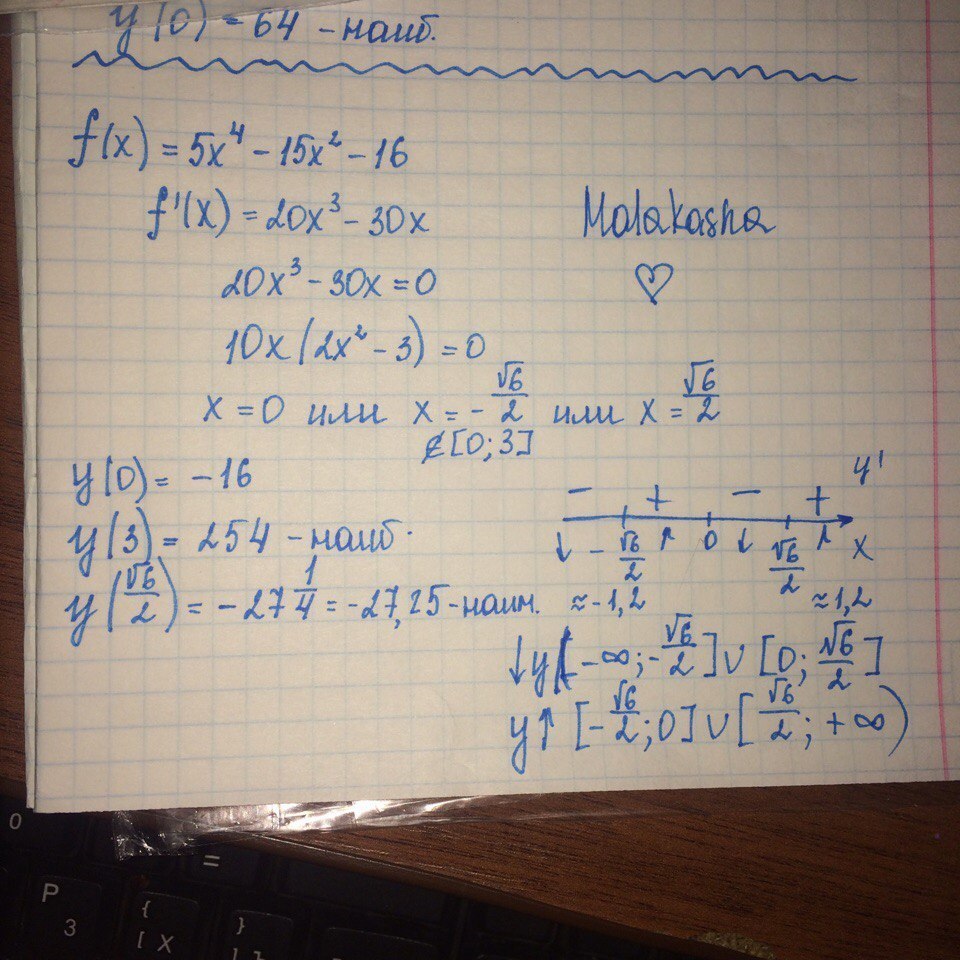 y(0) = 64 - наиб.
f(x) = 5x⁴ - 15x² - 16
f'(x) = 20x³ - 30x
Malakasha
♡
20x³ - 30x = 0
10x(2x² - 3) = 0
x = 0 или x = -√6/2 или x = √6/2
∉ [0; 3]
y(0) = -16
y(3) = 254 - наиб.
y(√6/2) = -27 1/4 = -27,25 - наим.
- + - + y'
↓ -√6/2 ↑ 0 ↓ √6/2 ↑ x
≈-1,2 ≈1,2
↓y(-∞; -√6/2] ∪ [0; √6/2]
y↑ [-√6/2; 0] ∪ [√6/2; +∞)
0
=
P
3
{
[ X
}
]